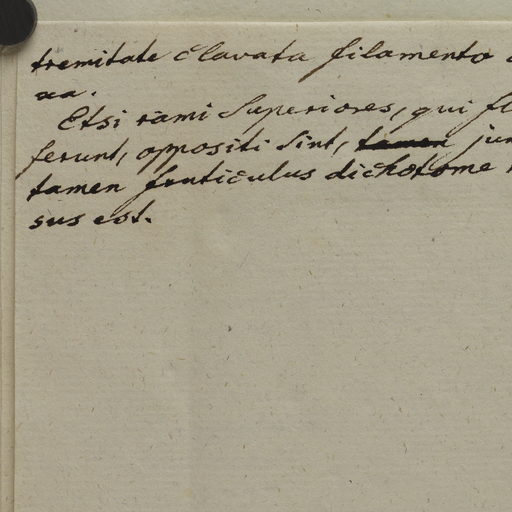 tremitate clavata filamento
xa.
Etsi rami superiores, qui fl
ferunt, oppositi sint, tamen jun
tamen fruticulus dichotome
sus est.